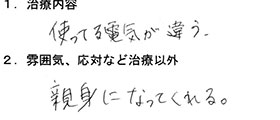 1. 治療内容
使ってる電気が違う.
2. 雰囲気、応対など治療以外
親身になってくれる。